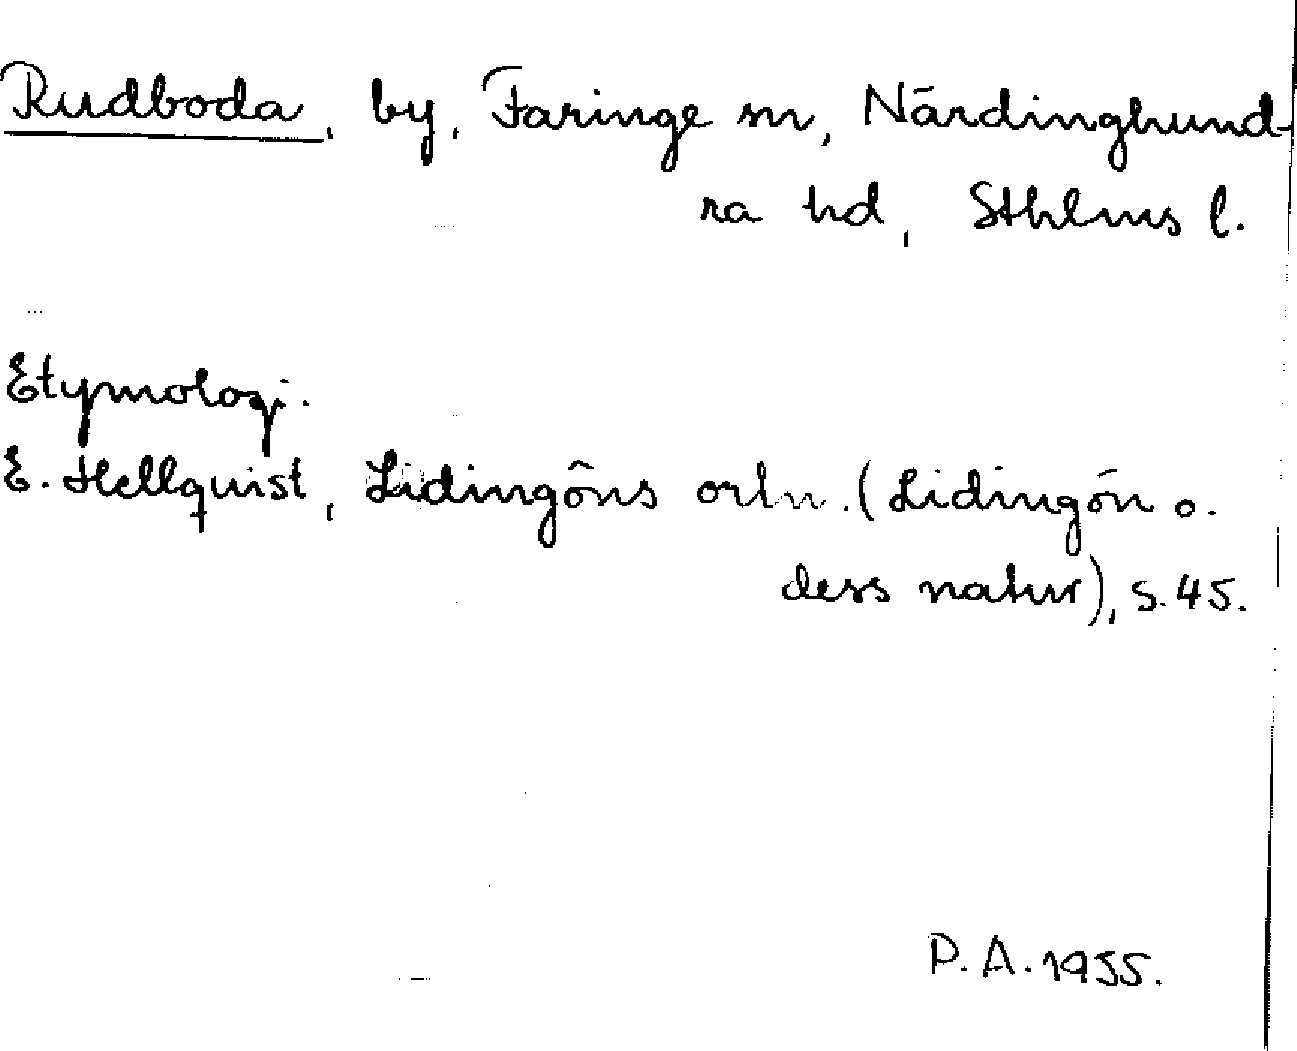 Rudboda, by, Faringe sn, Närdinghund-
ra hd, Sthlms l.
Etymologi.
E. Hellquist, Lidingöns ortn. (Lidingön o.
dess natur), s. 45.
P. A. 1955.